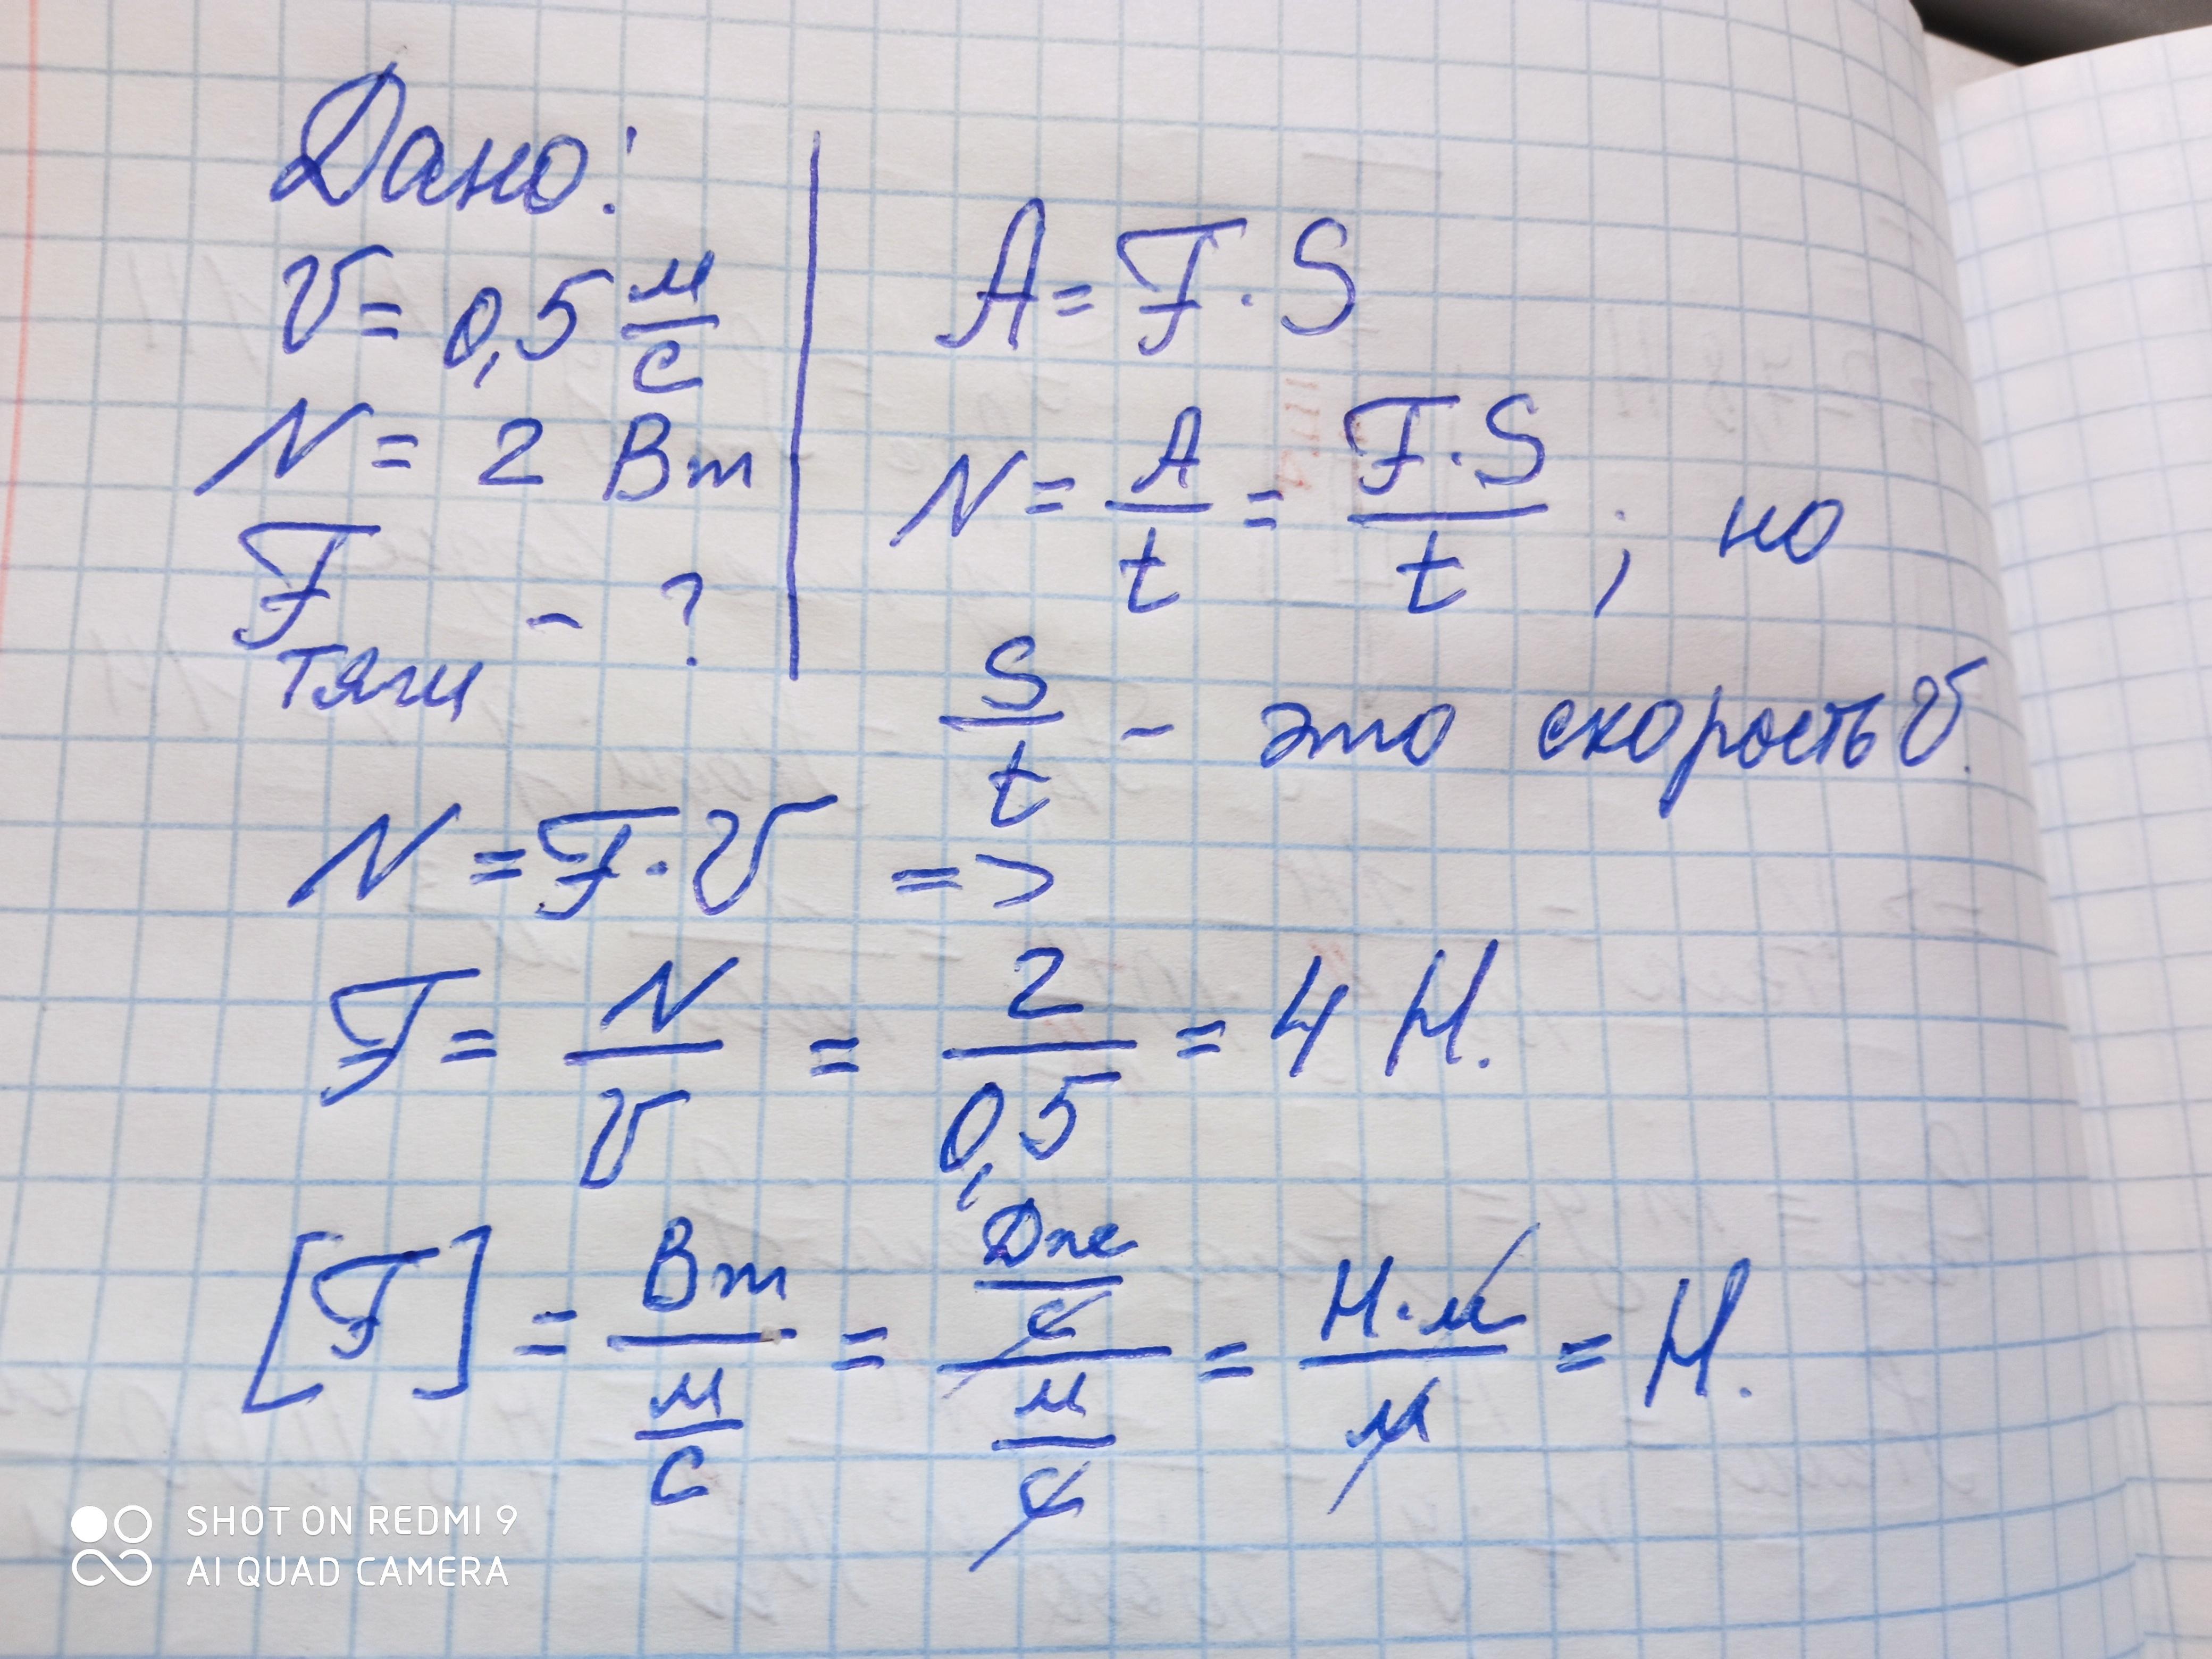 Дано:
υ = 0,5 м/с
N = 2 Вт
F тяги - ?
A = F · S
N = A/t = F·S/t ; но
S/t - это скорость υ.
N = F · υ =>
F = N/υ = 2/0,5 = 4 Н.
[F] = Вт/(м/с) = (Дж/с)/(м/с) = Н·м/м = Н.
SHOT ON REDMI 9
AI QUAD CAMERA